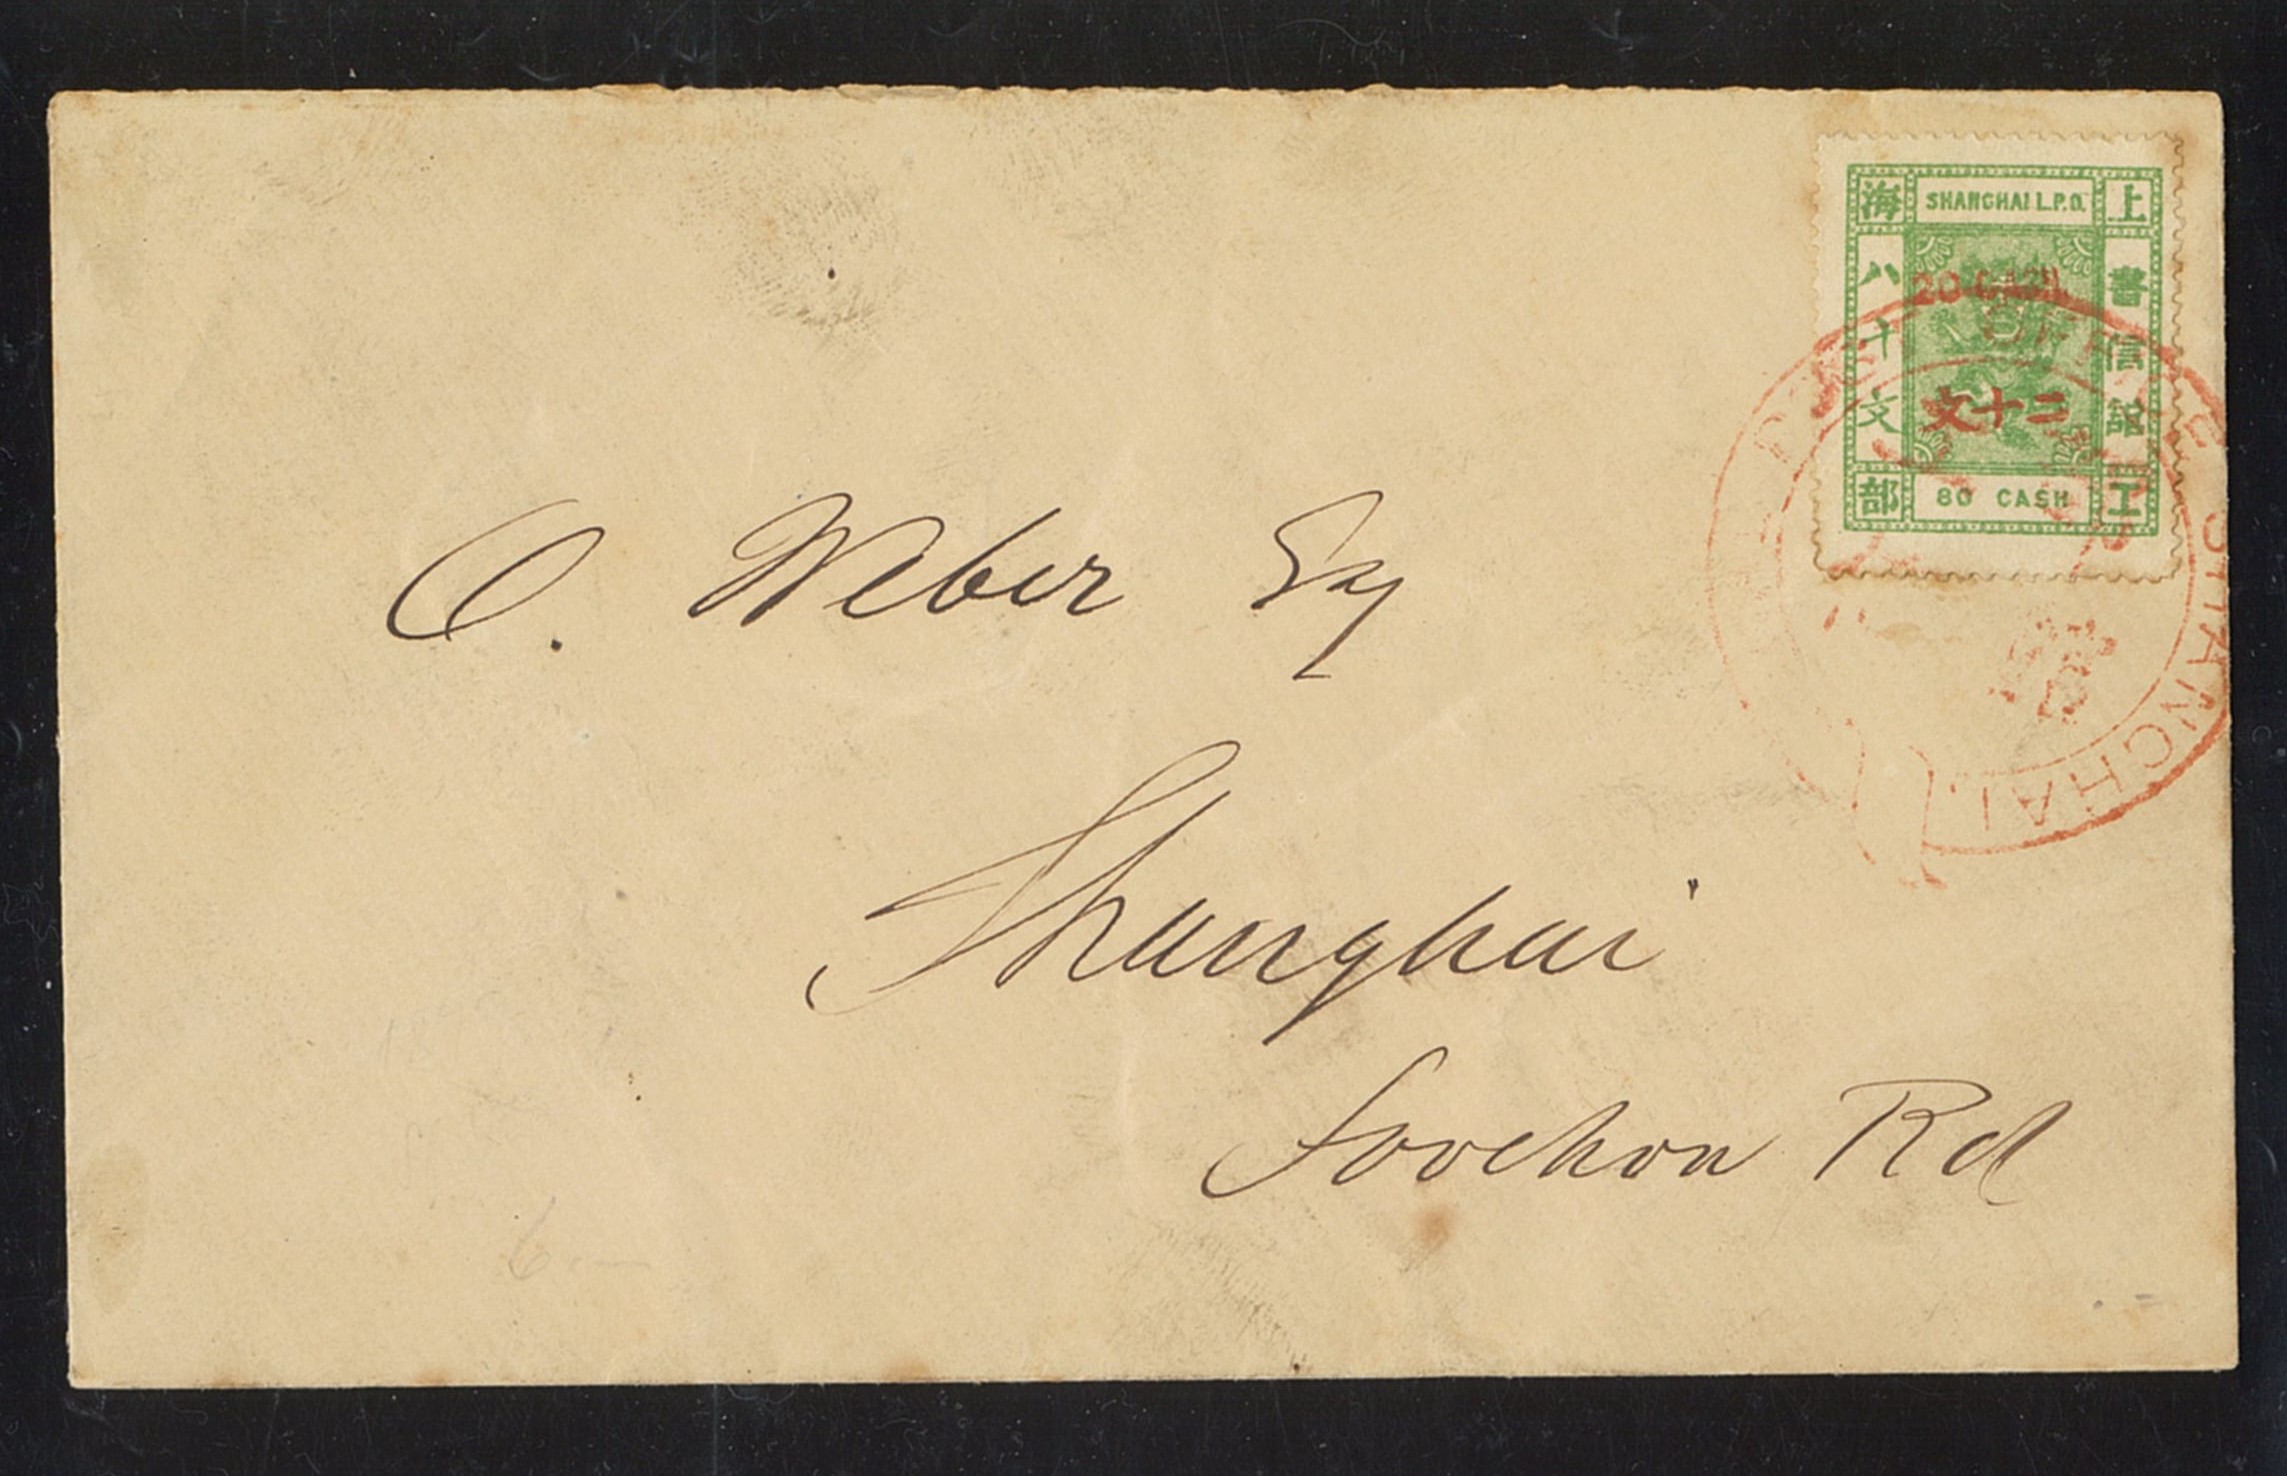 SHANGHAI L.P.O.
上海
書信館
八十文
工部
20 CASH
二十文
80 CASH
SHANGHAI.
O. Weber Esq
Shanghai
Soochow Rd
6.—